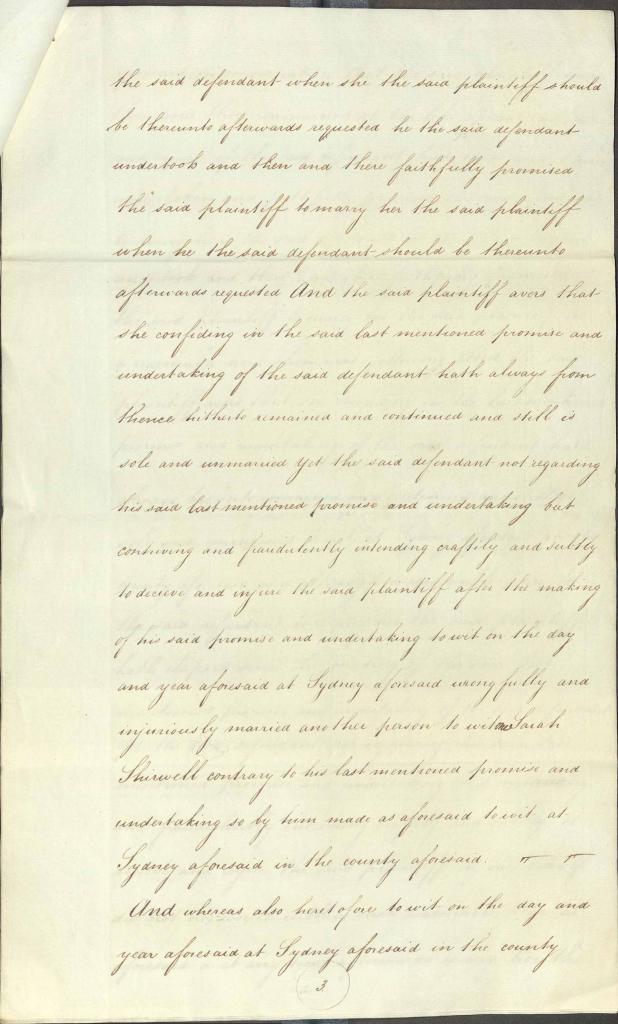 the said defendant when she the said plaintiff should
be thereunto afterwards requested he the said defendant
undertook and then and there faithfully promised
the said plaintiff to marry her the said plaintiff
when he the said defendant should be thereunto
afterwards requested And the said plaintiff avers that
she confiding in the said last mentioned promise and
undertaking of the said defendant hath always from
thence hitherto remained and continued and still is
sole and unmarried Yet the said defendant not regarding
his said last mentioned promise and undertaking but
contriving and fraudulently intending craftily and subtly
to decieve and injure the said plaintiff after the making
of his said promise and undertaking to wit on the day
and year aforesaid at Sydney aforesaid wrongfully and
injuriously married another person to wit one Sarah
Shirwell contrary to his last mentioned promise and
undertaking so by him made as aforesaid to wit at
Sydney aforesaid in the county aforesaid.
And whereas also heretofore to wit on the day and
year aforesaid at Sydney aforesaid in the county
3